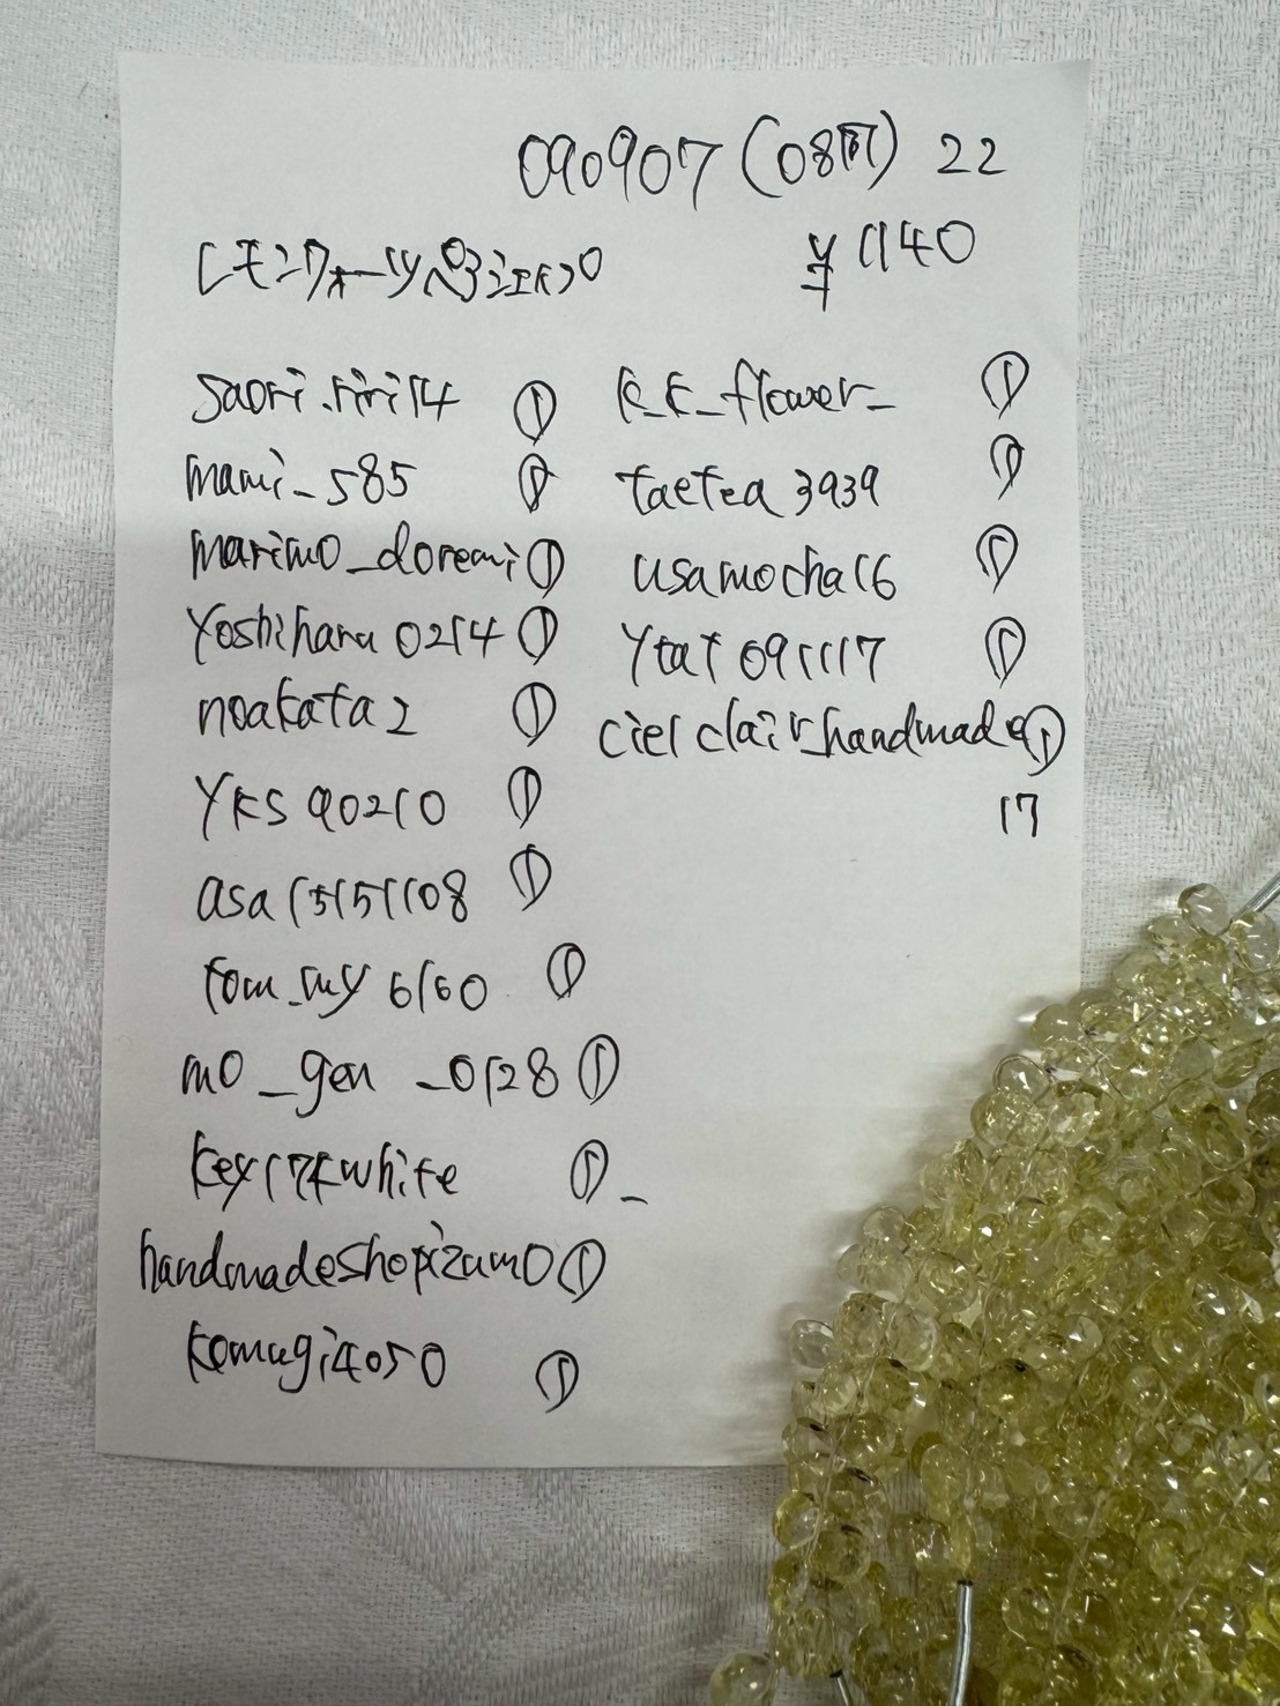 090907 (08頁) 22
レモンクォーツペアシェイプ ¥1140
saori.riri14 ①
mami_585 ①
marimo_doremi ①
yoshiharu0214 ①
noakata2 ①
yks90210 ①
asa15151108 ①
tom_my6160 ①
mo_gen_0128 ①
key174white ①
handmadeshopizumo ①
komugi4050 ①
k_k_flower_ ①
taetea3939 ①
usamocha16 ①
ytat091117 ①
cielclair_handmade ①
17